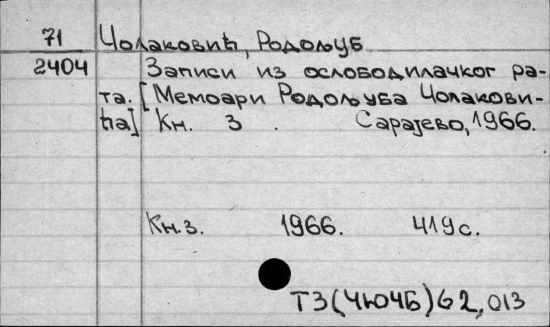 71 Чолаковић, Родољуб
2404 Записи из ослободилачког ра-
та. [Мемоари Родољуба Чолакови-
ћа] Кн. 3 . Сарајево, 1966.
Кн. 3. 1966. 419с.
Т3(4Ю4Б)62,013